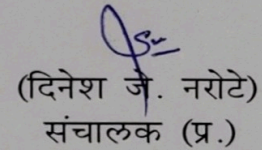 (दिनेश जे. नरोटे)
संचालक (प्र.)